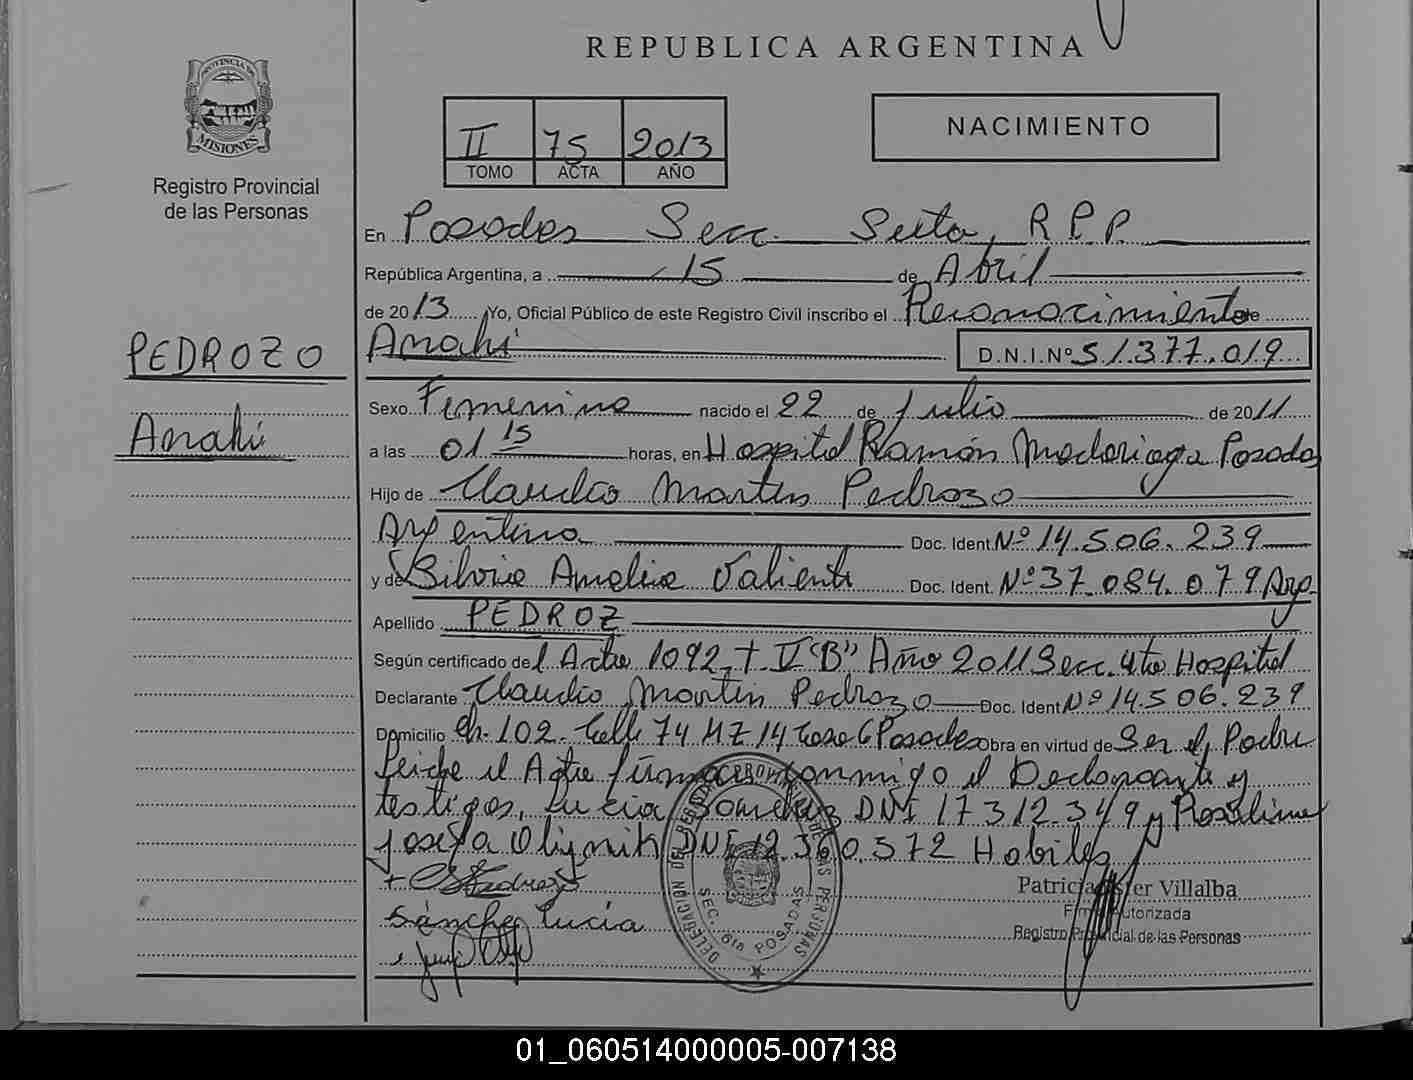 REPUBLICA ARGENTINA
PROVINCIA DE
MISIONES
Registro Provincial
de las Personas
II 75 2013
TOMO ACTA AÑO
NACIMIENTO
En Posadas Secc. Sexta, R.P.P.
República Argentina, a 15 de Abril
de 2013 Yo, Oficial Público de este Registro Civil inscribo el Reconocimiento de
PEDROZO
Anahí
Anahí D.N.I.Nº 51.377.019
Sexo Femenino nacido el 22 de Julio de 2011
a las 01 15 horas, en Hospital Ramón Madariaga Posadas
Hijo de Claudio Martin Pedrozo
Argentino Doc. Ident. Nº 14.506.239
y de Silvia Amelia Valiente Doc. Ident. Nº 37.084.079 Arg.
Apellido PEDROZ
Según certificado del Acta 1092 T V "B" Año 2011 Secc. 4ta Hospital
Declarante Claudio Martin Pedrozo Doc. Ident Nº 14.506.239
Domicilio Ch. 102 Calle 74 MZ 14 Casa 6 Posadas obra en virtud de Ser el Padre
Leida el Acta firman conmigo el Declarante y
testigos, Lucia DNI 17312.349 y Rosalina
Josefa Olijnik DNI 12.360.372 Habiles
Pedrozo
Sánchez Lucía
Patricia Villalba
Firma Autorizada
Registro Provincial de las Personas
DELEGACION DEL REGISTRO PROVINCIAL DE LAS PERSONAS
SEC. 6ta POSADAS
01_060514000005-007138